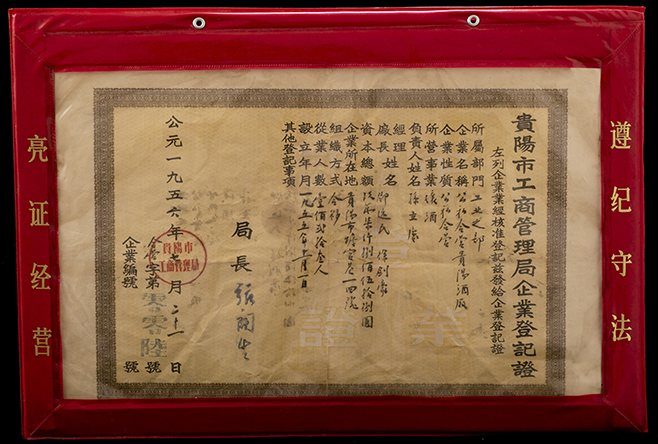 遵纪守法
貴陽市工商管理局企業登記證
左列企業業經核准登記茲發給企業登記證
所屬部門 工业之部
企業名稱 公私合营貴陽酒厰
企業性質 公私合营
所營事業 酒
負責人姓名
經理
廠長姓名
資本總額 捌佰伍拾捌圓
企業所在地 貴陽市
組織方式 合
從業人數 壹佰 拾叁人
設立年月 一九五五年 月一日
其他登記事項
局長 張
公元一九五六年七月二十一日
字第零零陸號
企業編號 號
貴陽市
工商管理局
營業
證
亮证经营